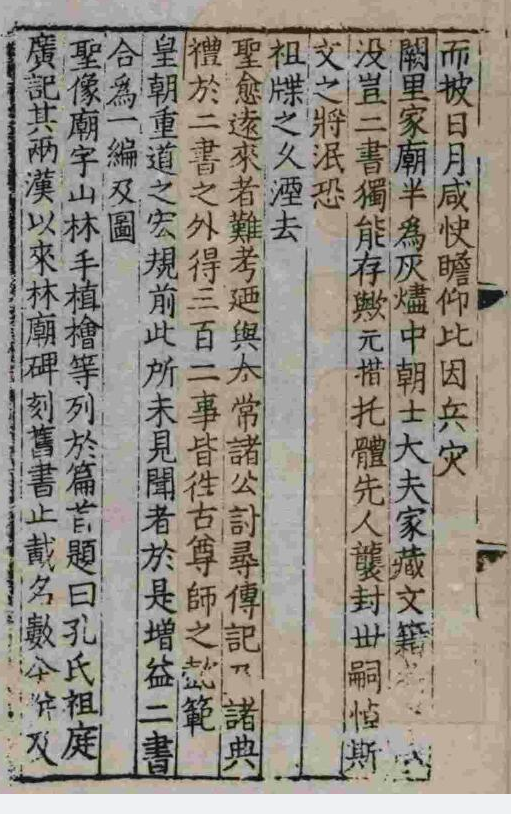 而披日月咸快瞻仰比因兵灾
闕里家廟半爲灰燼中朝士大夫家藏文籍
没豈二書獨能存歟元措托體先人襲封世嗣悼斯
文之將泯恐
祖牒之久湮去
聖愈遠來者難考廼與太常諸公討尋傳記及諸典
禮於二書之外得三百二事皆徃古尊師之懿範
皇朝重道之宏規前此所未見聞者於是增益二書
合爲一編及圖
聖像廟宇山林手植檜等列於篇首題曰孔氏祖庭
廣記其兩漢以來林廟碑刻舊書止載名數今併及